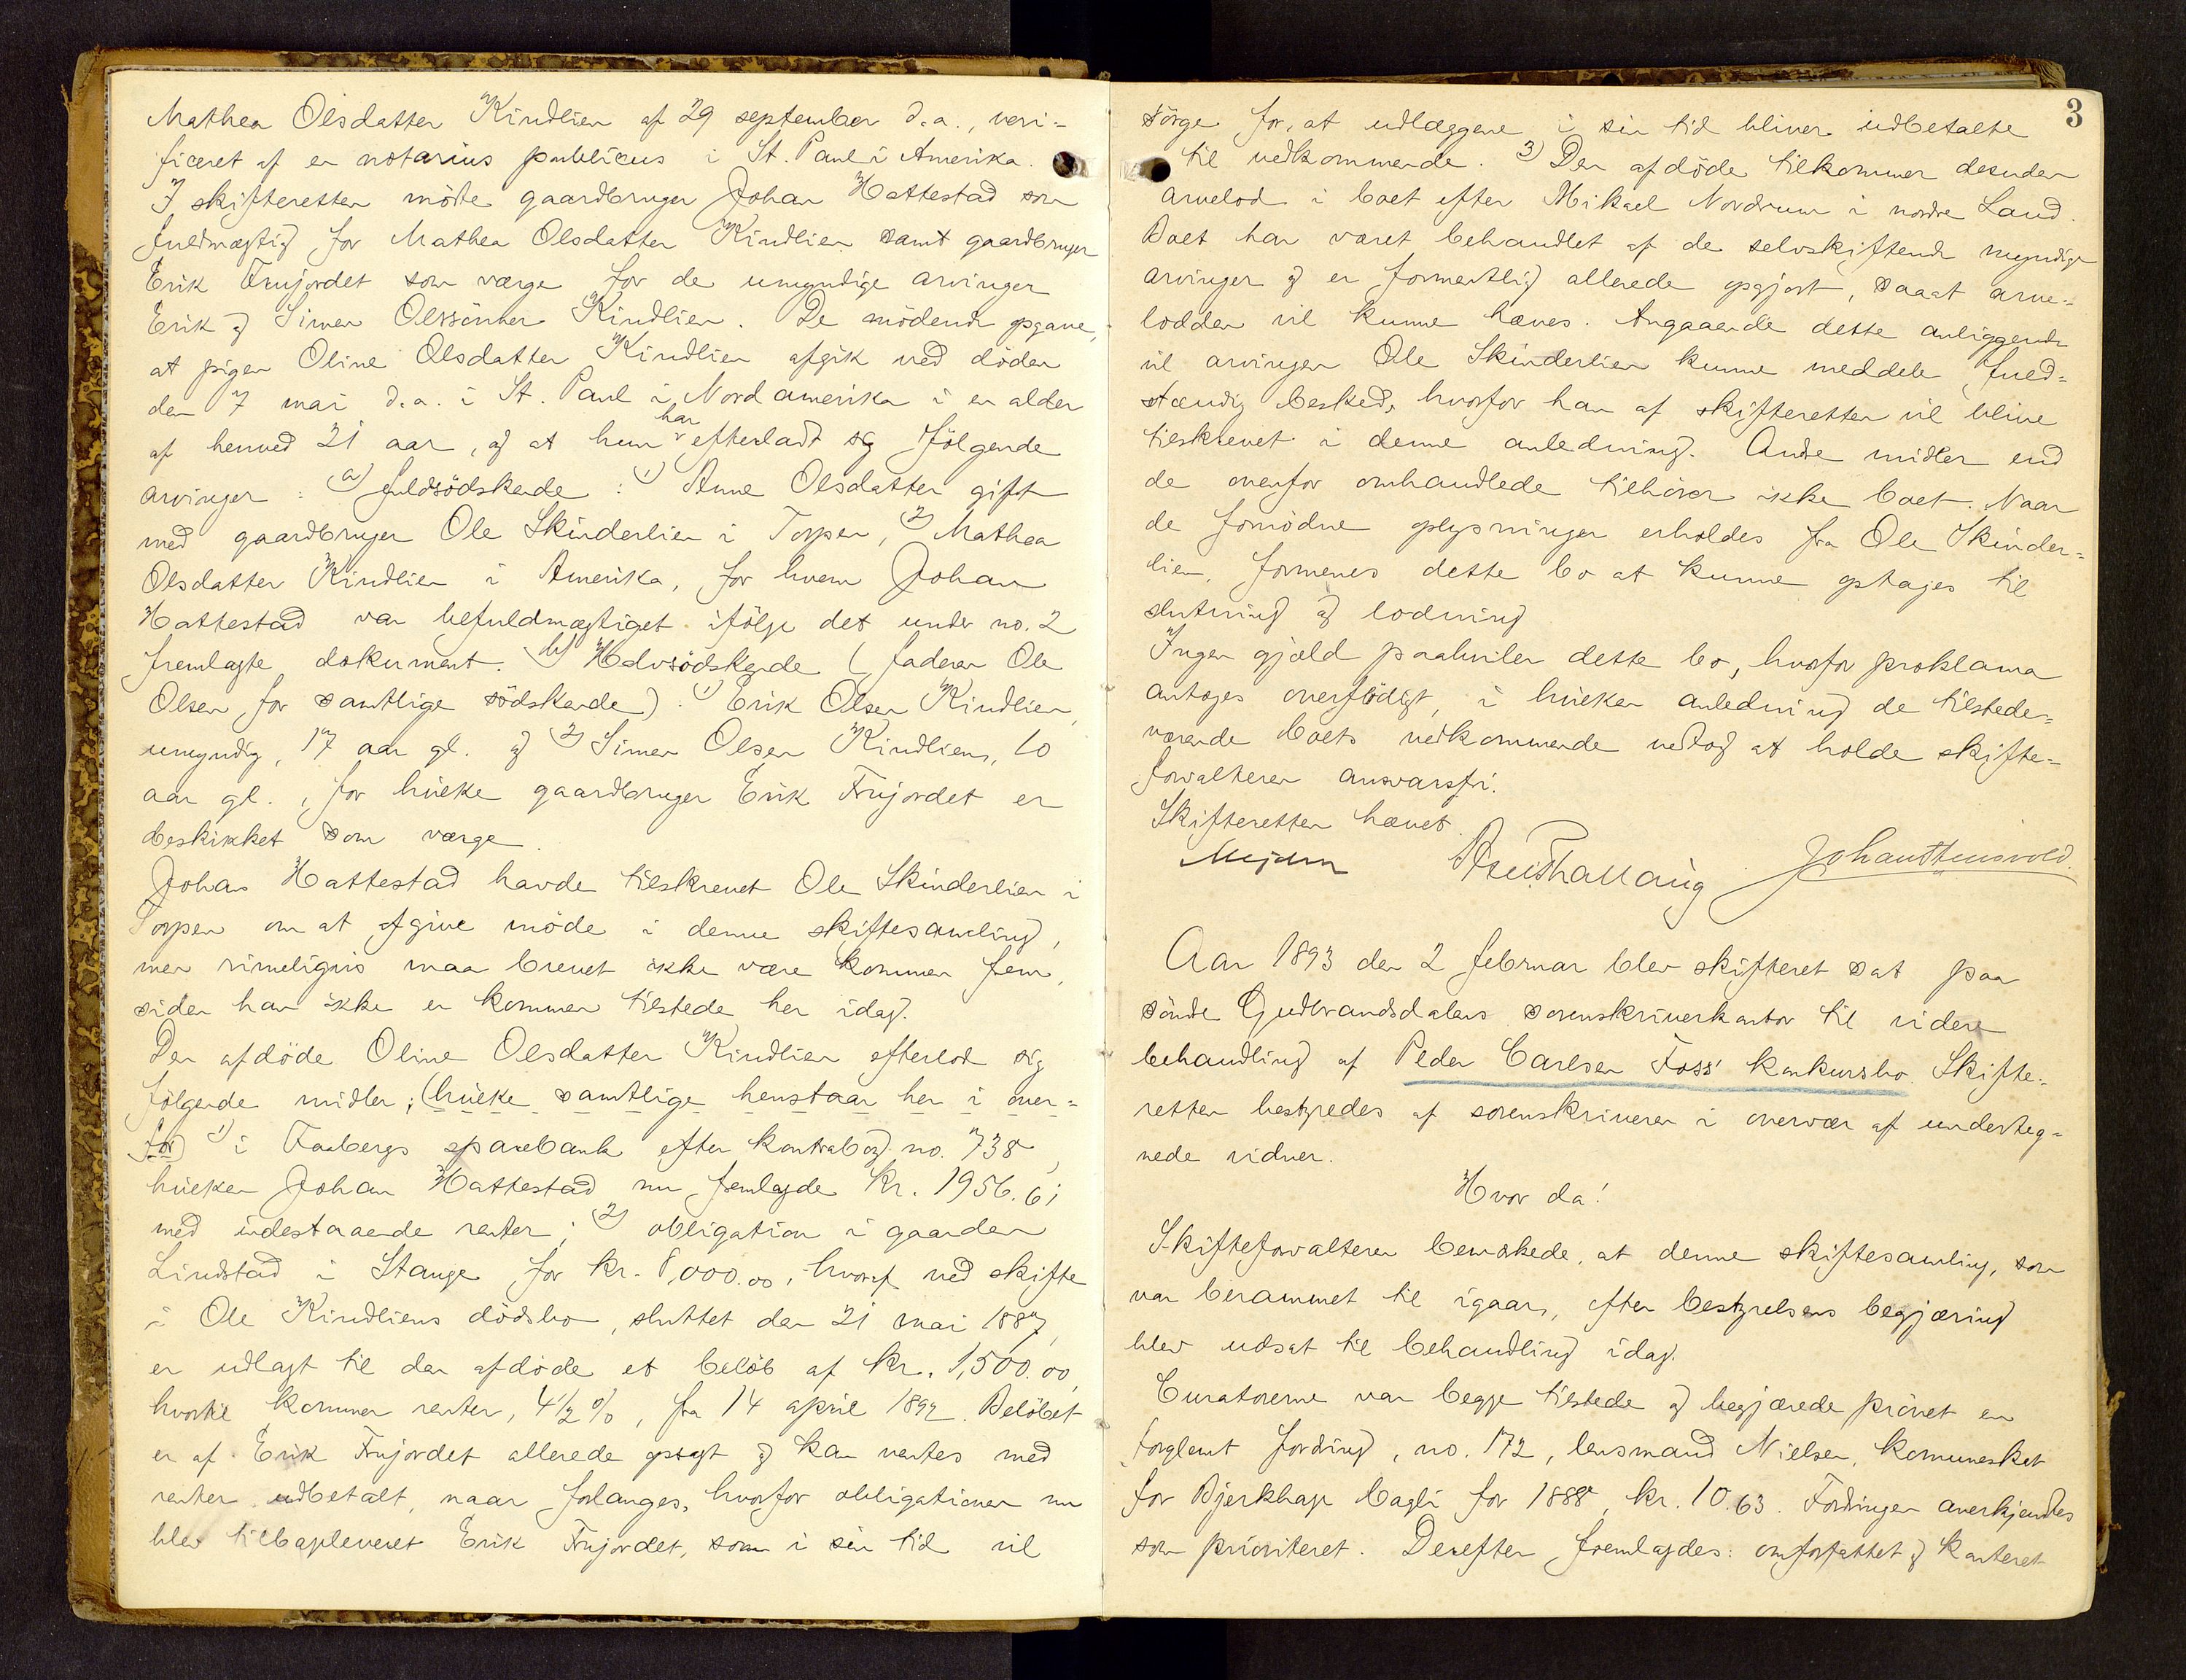 Mathea Olsdatter Kindlien af 29 september d.a., veri-
ficeret af en notarius publicus i St. Paul i Amerika.
I skifteretten mödte gaardbruger Johan Hattestad som
fuldmægtig for Mathea Olsdatter Kindlien samt gaardbruger
Erik Frujordet som værge for de umyndige arvinger
Erik og Simen Olssönner Kindlien. De mödende opgave,
at pigen Oline Olsdatter Kindlien afgik ved döden
den 7 mai d.a. i St. Paul i Nordamerika i en alder
af henved 21 aar, og at hun har efterladt sig fölgende
arvinger: a) fuldsödskende: 1) Anne Olsdatter gift
med gaardbruger Ole Skinderlien i Torpen, 2) Mathea
Olsdatter Kindlien i Amerika, for hvem Johan
Hattestad var befuldmægtiget ifölge det under no. 2
fremlagte dokument. b) Halvsödskende (faderen Ole
Olsen for samtlige södskende): 1) Erik Olsen Kindlien,
umyndig, 17 aar gl. og 2) Simen Olsen Kindlien, 10
aar gl., for hvilke gaardbruger Erik Frujordet er
beskikket som værge.
Johan Hattestad havde tilskrevet Ole Skinderlien i
Torpen om at afgive möde i denne skiftesamling,
men rimeligvis maa brevet ikke være kommen frem,
siden han ikke er kommen tilstede her idag.
Den afdöde Oline Olsdatter Kindlien efterlod sig
fölgende midler; (hvilke samtlige henstaar her i over-
for) 1) i Faabergs sparebank efter kontrabog no. 738,
hvilken Johan Hattestad nu fremlagde kr. 1956.61
med indestaaende renter; 2) obligation i gaarden
Lindstad i Stange for kr. 8,000.00, hvoraf ved skifte
i Ole Kindliens dödsbo, sluttet den 21 mai 1887,
er udlagt til den afdöde et belöb af kr. 1,500.00,
hvortil kommer renter, 4½ %, fra 14 april 1892. Belöbet
er af Erik Frujordet allerede opsagt og kan ventes med
renter udbetalt, naar forlanges, hvorfor obligationen nu
blev tilbageleveret Erik Frujordet, som i sin tid vil
3
sörge for, at udlæggene i sin tid bliver udbetalte
til vedkommende. 3) Den afdöde tilkommer desuden
arvelod i boet efter Mikael Nordrum i nordre Land.
Boet har været behandlet af de selvskiftende myndige
arvinger og er formentlig allerede opgjort, saaat arve-
lodden vil kunne hæves. Angaaende dette anliggende
vil arvingen Ole Skinderlien kunne meddele fuld-
stændig besked, hvorfor han af skifteretten vil blive
tilskrevet i denne anledning. Andre midler end
de ovenfor omhandlede tilhörer ikke boet. Naar
de fornödne oplysninger erholdes fra Ole Skinder-
lien, formenes dette bo at kunne optages til
slutning og lodning
Ingen gjæld paahviler dette bo, hvorfor proklama
antages overflödigt, i hvilken anledning de tilstede-
værende boets vedkommende vedtog at holde skifte-
forvalteren ansvarsfri.
Skifteretten hævet.
Aar 1893 den 2 februar blev skifteret sat paa
söndre Gudbrandsdalens sorenskriverkontor til videre
behandling af Peder Carlsen Foss' konkursbo. Skifte-
retten bestyredes af sorenskriveren i overvær af underteg-
nede vidner.
Hvor da!
Skifteforvalteren bemærkede, at denne skiftesamling, som
var berammet til igaar, efter bestyrelsens begjæring
blev udsat til behandling idag.
Curatorerne var begge tilstede og begjærede prövet en
forglemt fordring, no. 172, lensmand Nielsen, komuneskat
for Bjerkhage Bagli for 1888, kr. 10.63. Fordringen anerkjendtes
som prioriteret. Derefter fremlagdes: omforfattet og kvoteret